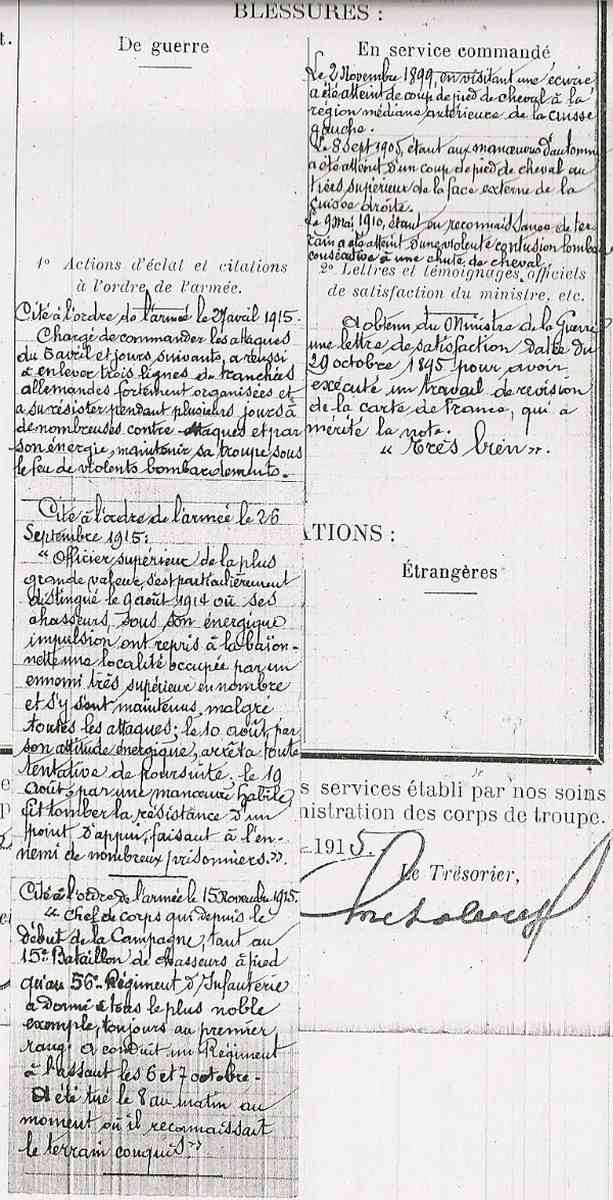 BLESSURES :
t.
De guerre
En service commandé
Le 2 Novembre 1899, en visitant une écurie
a été atteint de coup de pied de cheval à la
région médiane antérieure de la cuisse
gauche.
Le 8 Sept 1905, étant aux manœuvres d'automne
a été atteint d'un coup de pied de cheval au
tiers supérieur de la face externe de la
cuisse droite.
Le 9 Mai 1910, étant en reconnaissance de ter-
rain a été atteint d'une violente contusion lomba
consécutive à une chute de cheval
1º Actions d'éclat et citations
à l'ordre de l'armée.
Cité à l'ordre de l'armée le 27 avril 1915.
Chargé de commander les attaques
du 5 avril et jours suivants, a réussi
à enlever trois lignes de tranchées
allemandes fortement organisées et
a su résister pendant plusieurs jours à
de nombreuses contre-attaques et par
son énergie, maintenir sa troupe sous
le feu de violents bombardements.
Cité à l'ordre de l'armée le 26
Septembre 1915:
« Officier supérieur de la plus
grande valeur, s'est particulièrement
distingué le 9 août 1914 où ses
chasseurs, sous son énergique
impulsion ont repris à la baïon-
nette une localité occupée par un
ennemi très supérieur en nombre
et s'y sont maintenus, malgré
toutes les attaques; le 10 août, par
son attitude énergique, arrêta toute
tentative de poursuite. le 19
Août, par une manœuvre habile,
fit tomber la résistance d'un
point d'appui, faisant à l'en-
nemi de nombreux prisonniers. ».
Cité à l'ordre de l'armée le 15 Novembre 1915.
« Chef de corps qui depuis le
début de la Campagne, tant au
15e Bataillon de chasseurs à pied
qu'au 56e Régiment d'Infanterie
a donné à tous le plus noble
exemple, toujours au premier
rang. a conduit un Régiment
à l'assaut les 6 et 7 octobre.
A été tué le 8 au matin au
moment où il reconnaissait
le terrain conquis. »
2º Lettres et témoignages officiels
de satisfaction du ministre, etc.
A obtenu du Ministre de la Guerre
une lettre de satisfaction datée du
29 octobre 1895 pour avoir
exécuté un travail de revision
de la carte de France, qui a
mérité la note.
« Très bien ».
ATIONS :
Étrangères
s services établi par nos soins
nistration des corps de troupe.
1915.
Le Trésorier,